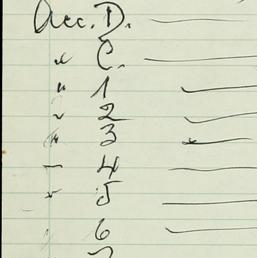 Acc. D.
" C.
" 1
" 2
" 3
— 4
" 5
" 6